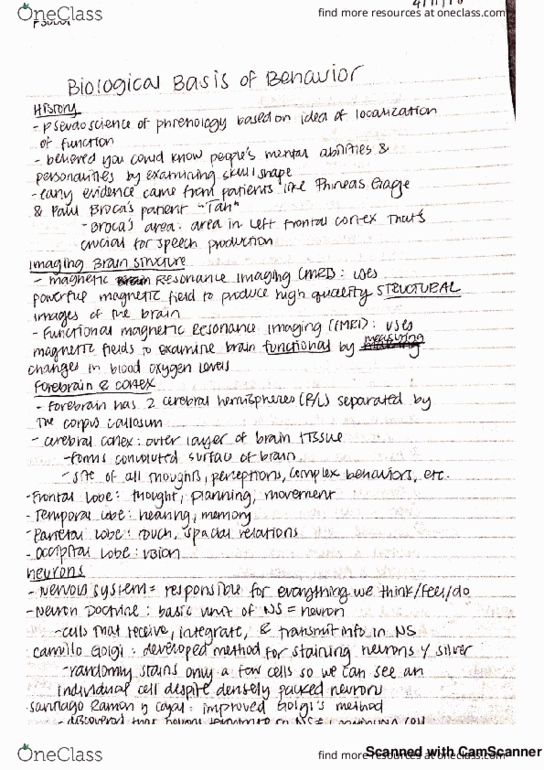 OneClass
find more resources at oneclass.com
Biological Basis of Behavior
History
- pseudoscience of phrenology based on idea of localization
of function
- believed you could know people's mental abilities &
personalities by examining skull shape
- early evidence came from patients like Phineas Gage
& Paul Broca's patient "Tan"
- Broca's area: area in left frontal cortex that's
crucial for speech production
Imaging Brain Structure
- magnetic Resonance Imaging (MRI): uses
powerful magnetic field to produce high quality STRUCTURAL
images of the brain
- Functional magnetic Resonance Imaging (fMRI): uses
magnetic fields to examine brain functional by measuring
changes in blood oxygen levels
Forebrain & cortex
- Forebrain has 2 cerebral hemispheres (R/L) separated by
the corpus callosum
- cerebral cortex: outer layer of brain tissue
- forms convoluted surface of brain
- site of all thoughts, perceptions, complex behaviors, etc.
- Frontal lobe: thought, planning, movement
- Temporal lobe: hearing, memory
- Parietal lobe: touch, spacial relations
- occipital lobe: vision
neurons
- Nervous system = responsible for everything we think/feel/do
- Neuron Doctrine: basic unit of NS = neuron
- cells that receive, integrate, & transmit info in NS
camillo Golgi: developed method for staining neurons silver
- randomly stains only a few cells so we can see an
individual cell despite densely packed neurons
Santiago Ramon y Cajal: improved Golgi's method
OneClass
find more resources at oneclass.com
Scanned with CamScanner